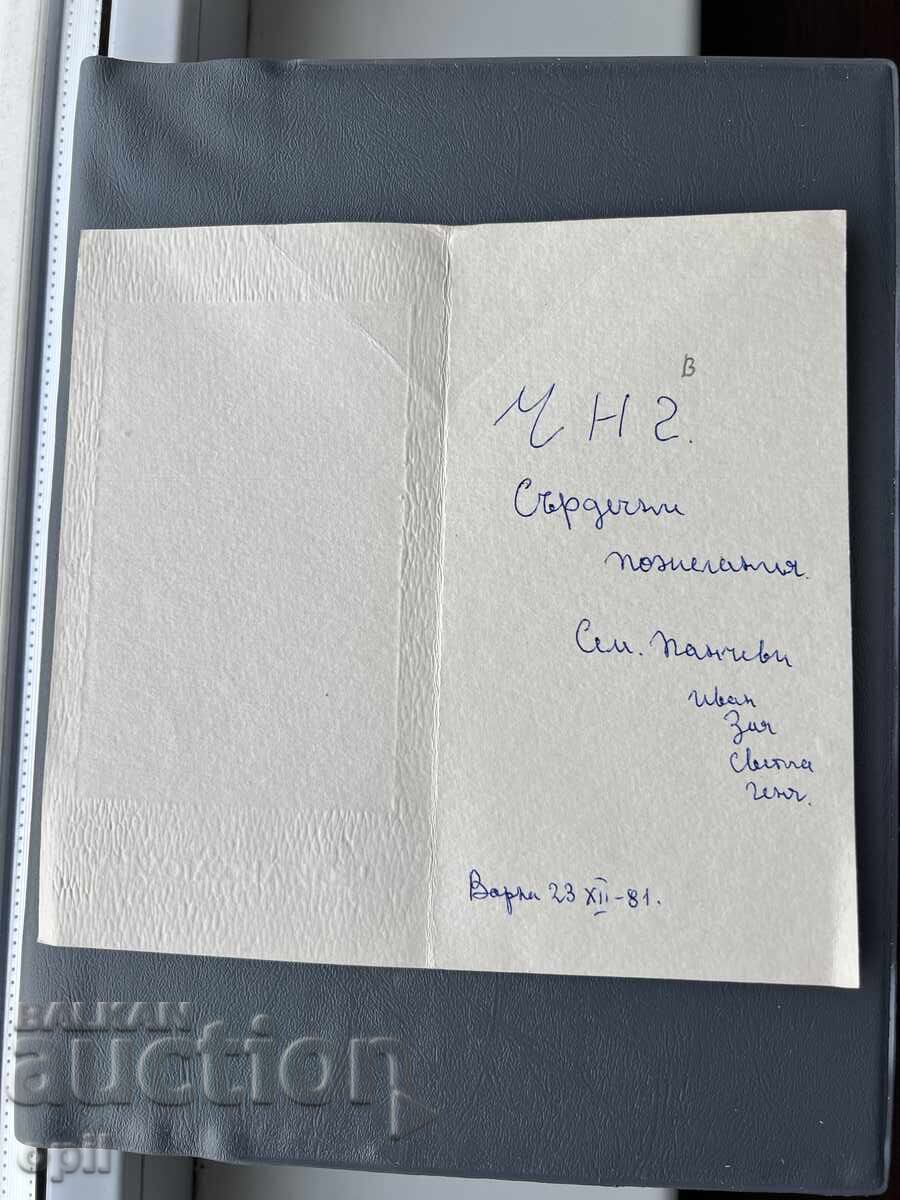 В
ЧНГ.
Сърдечни
пожелания.
Сем. Панчеви
Иван
Зая
Светла
Генч.
Варна 23 XII-81.
BALKAN
auction
opil